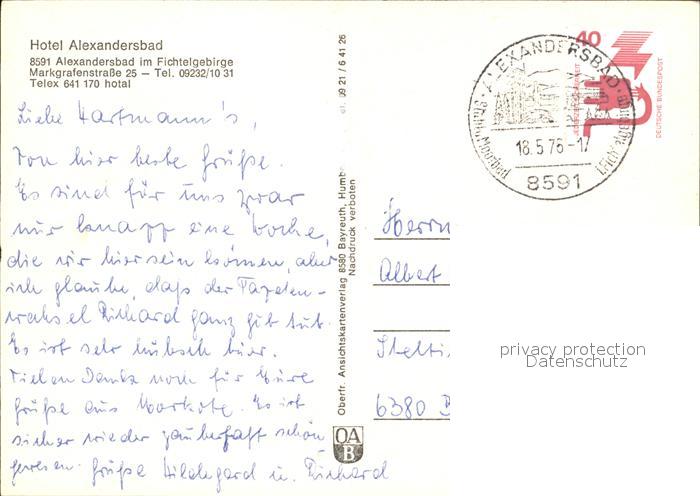 Hotel Alexandersbad
8591 Alexandersbad im Fichtelgebirge
Markgrafenstraße 25 — Tel. 09232/10 31
Telex 641 170 hotal
Liebe Hartmann's,
von hier beste Grüße.
Es sind für uns zwar
nur knapp eine Woche,
die wir hier sein können, aber
ich glaube, daß der Tapeten-
wechsel Richard ganz gut tut.
Es ist sehr hübsch hier.
Vielen Dank noch für Eure
Grüße aus Es ist
sicher wieder zauberhaft schön
gewesen. Grüße Hildegard u. Richard
Oberfr. Ansichtskartenverlag 8580 Bayreuth, Humb
Nachdruck verboten
el. 09 21 / 6 41 26
OA
B
ALEXANDERSBAD
18.5.76-17
8591
40
JEDERZEIT SICHERHEIT
DEUTSCHE BUNDESPOST
Herrn
Albert
6380 B
privacy protection
Datenschutz